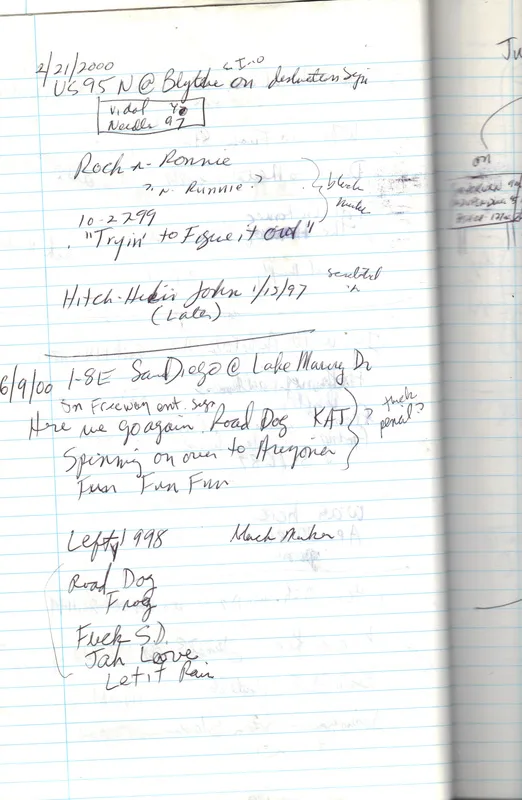 2/21/2000
US95 N @ Blythe on destination sign
Vidal
Needles 97
Rock n- Ronnie
? N. Runnie ?
black
10-2799
"Tryin' to Figure it out"
Hitch-Hikin John 1/13/97
scratched
in
(Later)
6/9/00 I-8E San Diego @ Lake Murray Dr
on Freeway ent. sign
Here we go again Road Dog KAT
? thick
pencil?
Spinning on over to Arizona
Fun Fun Fun
Lefty 1998
Road Dog
Frog
Fuck S.D.
Jah Love
Let it Rain
Ju
on